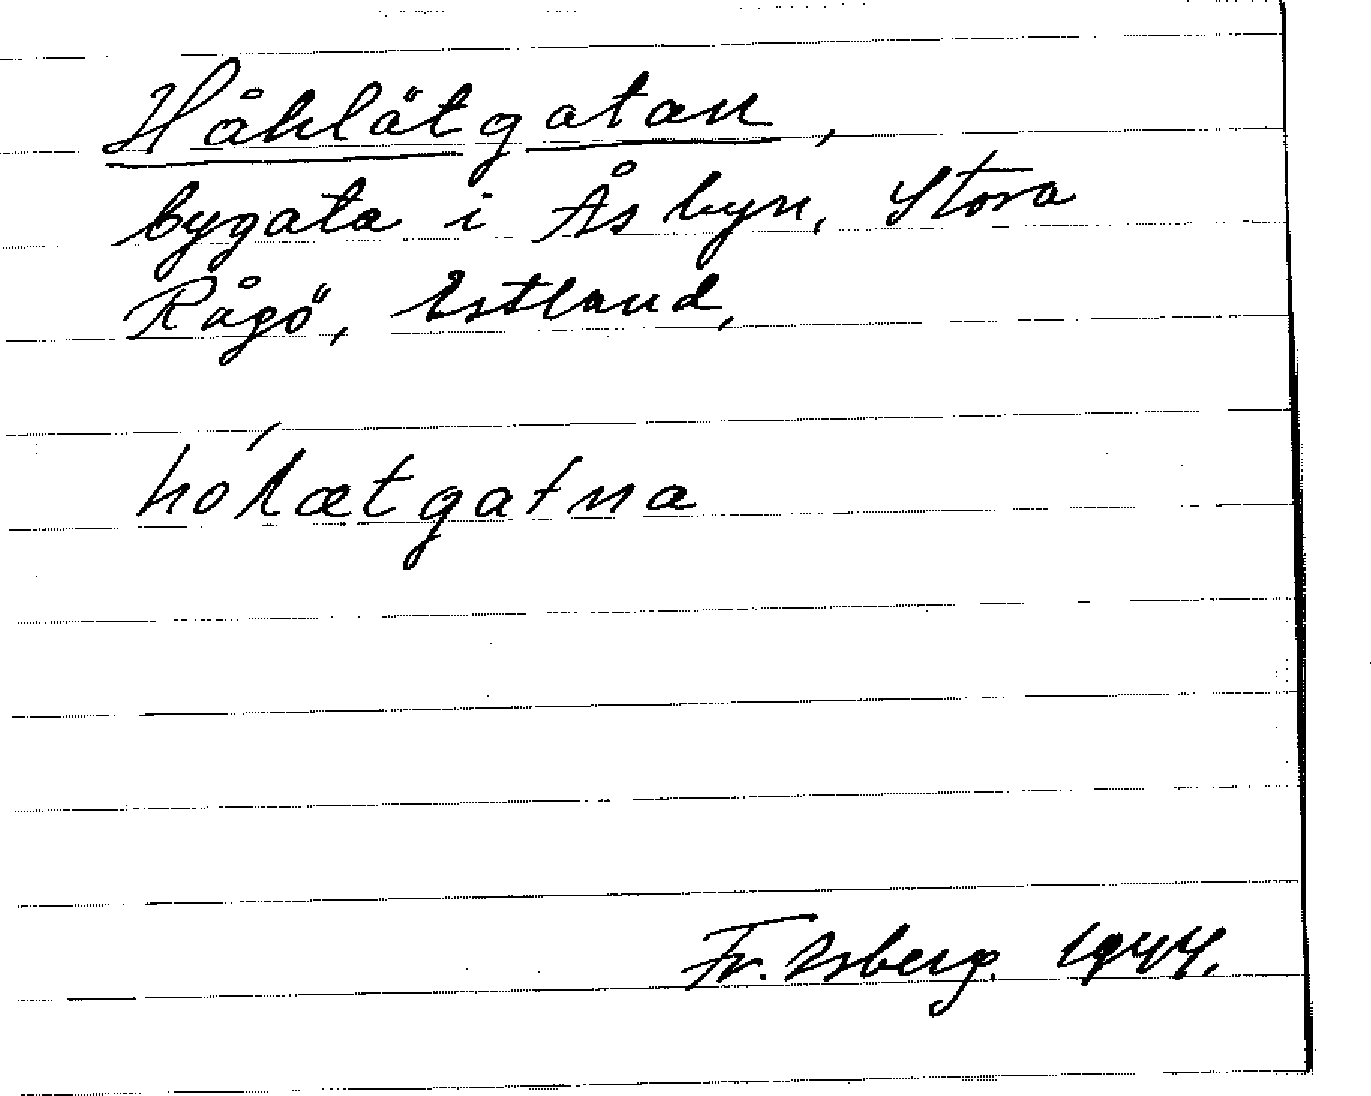 Håklätgatan,
bygata i Ås byn, Stora
Rågö, Estland,
hólætgatna
Fr. Isberg. 1944.